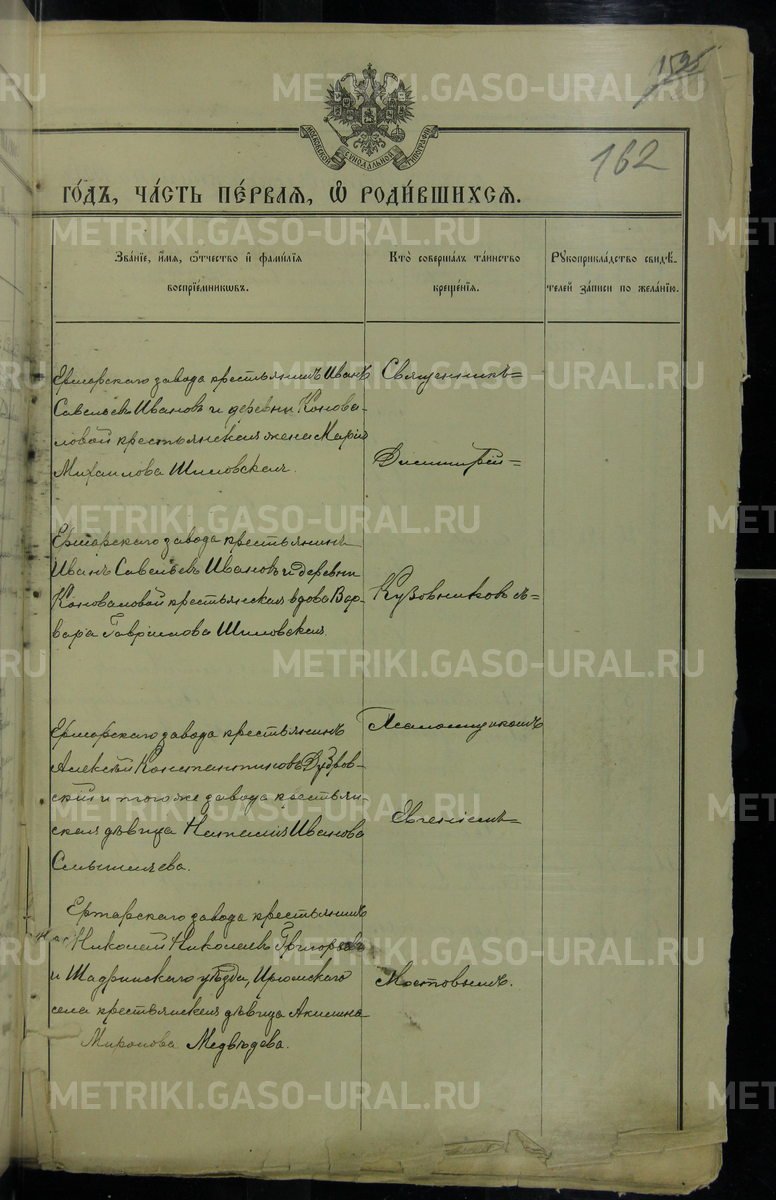 162
МОСКОВСКОЙ СѴНОДАЛЬНОЙ ТИПОГРАФІИ
ГО́ДЪ, ЧА́СТЬ ПЕ́РВАЯ, Ѡ҆ РОДИ́ВШИХСЯ.
Зва́нїе, и҆́мѧ, ѻ҆́тчество и҆ фами́лїѧ
воспрїе́мникѡвъ.
Кто̀ соверша́лъ та́инство
креще́нїѧ.
Рꙋкоприкла́дство свидѣ́-
телей за́писи по жела́нїю.
Ертарскаго завода крестьянинъ Иванъ
Савельевъ Ивановъ и деревни Конова-
ловой крестьянская жена Марія
Михаилова Шиловская.
Священникъ=
Димитрій=
Ертарскаго завода крестьянинъ
Иванъ Савельевъ Ивановъ и деревни
Коноваловой крестьянская вдова Вар-
вара Гавріилова Шиловская
Кузовниковъ=
Ертарскаго завода крестьянинъ
Алексѣй Константиновъ Дубров-
скій и того же завода крестьян-
ская дѣвица Наталія Иванова
Смышляева.
Псаломщикомъ
Евгеніемъ=
Ертарскаго завода крестьянинъ
Николай Николаевъ Григорьевъ
и Шадринскаго уѣзда, Ирюмскаго
села крестьянская дѣвица Акилина
Миронова Медвѣдева.
Мостовымъ.
METRIKI.GASO-URAL.RU